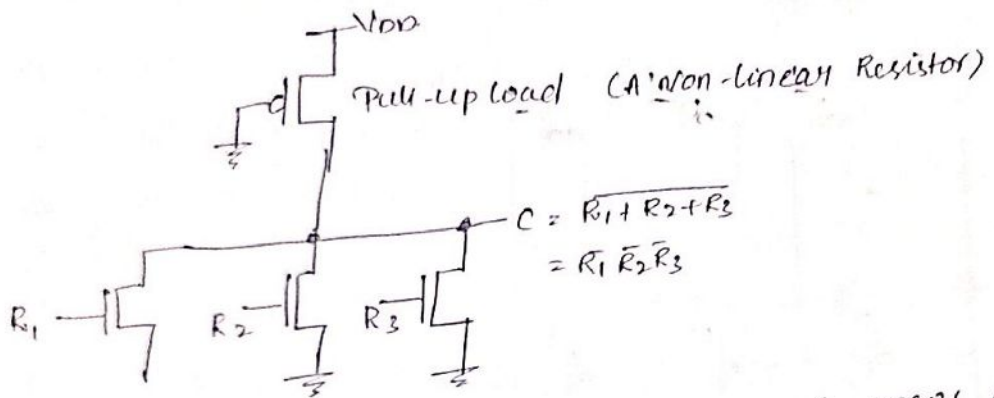 VDD
Pull-up load (A non-linear Resistor)
C = \overline{R1 + R2 + R3}
= R̅1 R̅2 R̅3
R1
R2
R3